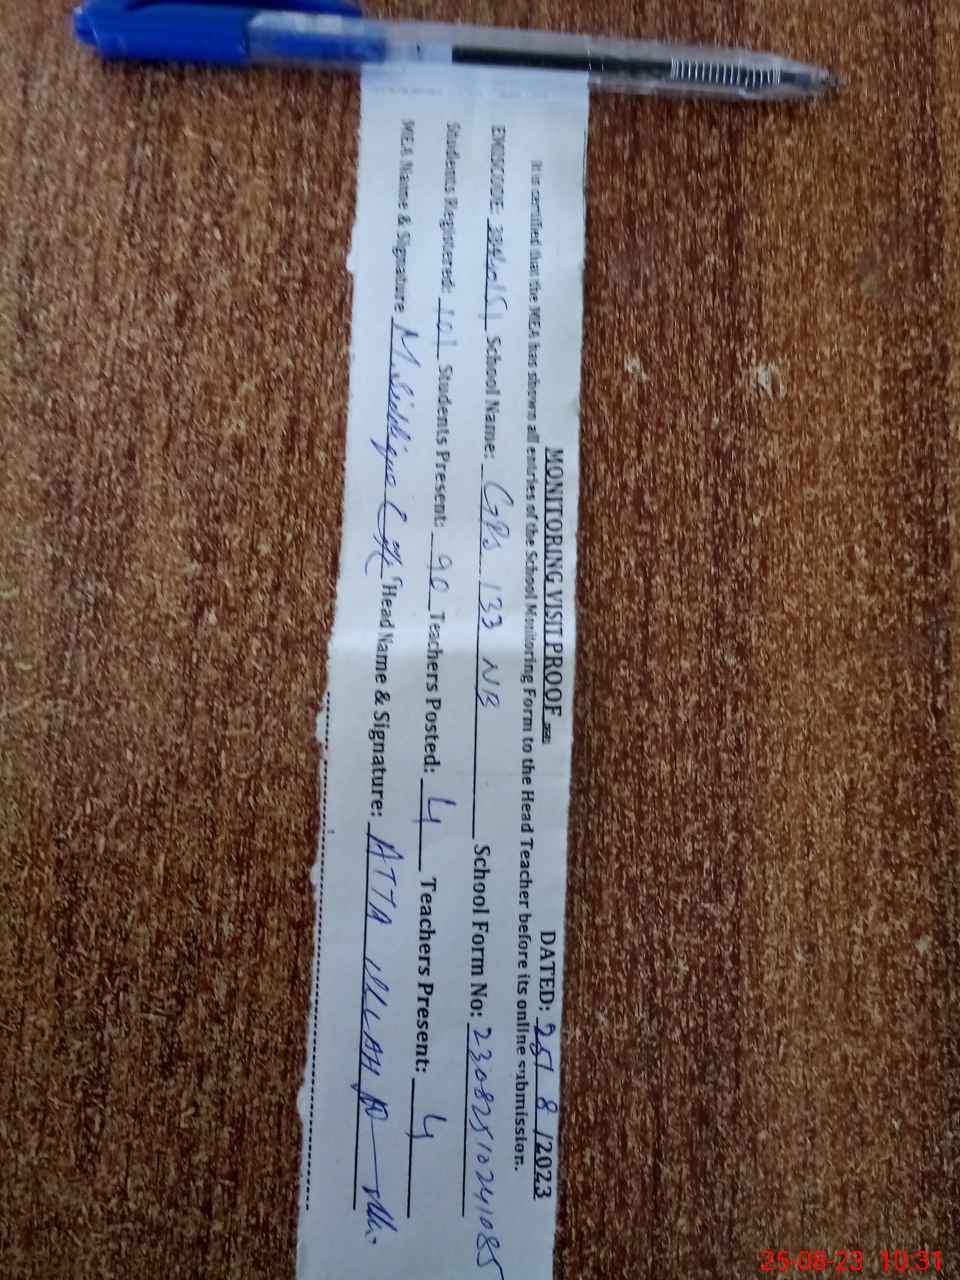 MONITORING VISIT PROOF DATED: 25/ 8 /2023
It is certified that the MEA has shown all entries of the School Monitoring Form to the Head Teacher before its online submission.
EMISCODE: School Name: GPS 133 NB School Form No: 23082510241085
Students Registered: 101 Students Present: 90 Teachers Posted: 4 Teachers Present: 4
MEA Name & Signature Head Name & Signature: ATTA ULLAH
25-08-23 10:31